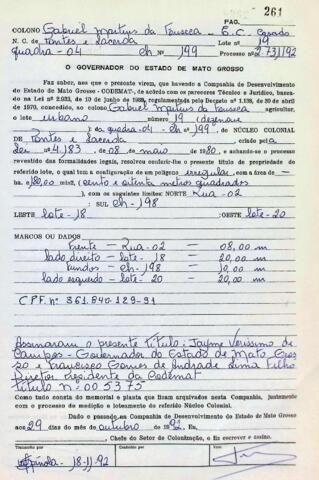 PÁG. 261
COLONO Gabriel Martins da Fonseca - E.C. Casado
N. C. de Pontes e Lacerda Lote nº 19
quadra-04 ch nº 199 Processo nº 2.731/92
O GOVERNADOR DO ESTADO DE MATO GROSSO
Faz saber, aos que o presente virem, que havendo a Companhia de Desenvolvimento
do Estado de Mato Grosso - CODEMAT-, de acordo com os pareceres Técnico e Jurídico, basea-
do na Lei nº 2.033, de 10 de junho de regulamentada pelo Decreto nº 1.138, de 30 de abril
de 1970, concedido, ao colono Gabriel Martins da Fonseca agricultor,
o lote urbano nº 19 (dezenove
) da quadra-04-ch nº 199, do NÚCLEO COLONIAL
DE Pontes e Lacerda criado pela
Lei nº 4.183, de 08 de maio de 1980, e achando-se o processo
revestido das formalidades legais, resolveu conferir-lhe o presente título de propriedade
do referido lote, o qual tem a configuração de um polígono irregular, com a área de —
ha. 180,00 mts2, (cento e oitenta metros quadrados
), com os seguintes limites: NORTE Rua-02
: SUL ch-198
LESTE lote-18 :OESTE lote-20
MARCOS OU DADOS
frente - Rua-02 - 08,00 m
lado direito - lote-18 - 20,00 m
fundos - ch-198 - 10,00 m
lado esquerdo - lote-20 - 20,00 m
CPF. nº 361.840.129-91
Assinaram o presente título: Jayme Veríssimo de
Campos - Governador do Estado de Mato Gros
so e Francisco Gomes de Andrade Lima Filho
Diretor Presidente da Codemat
título nº 005375
Como tudo consta do memorial e planta que ficam arquivados nesta Companhia, juntamente
com o processo de medição e loteamento do referido Núcleo Colonial.
Dado e passado na Companhia de Desenvolvimento do Estado de Mato Grosso
aos 29 dias do mês de outubro de 1992. Eu,
, Chefe do Setor de Colonização, o fiz escrever e assino.
Transcrito por Conferido por Visto
Espínola - 18-11-92